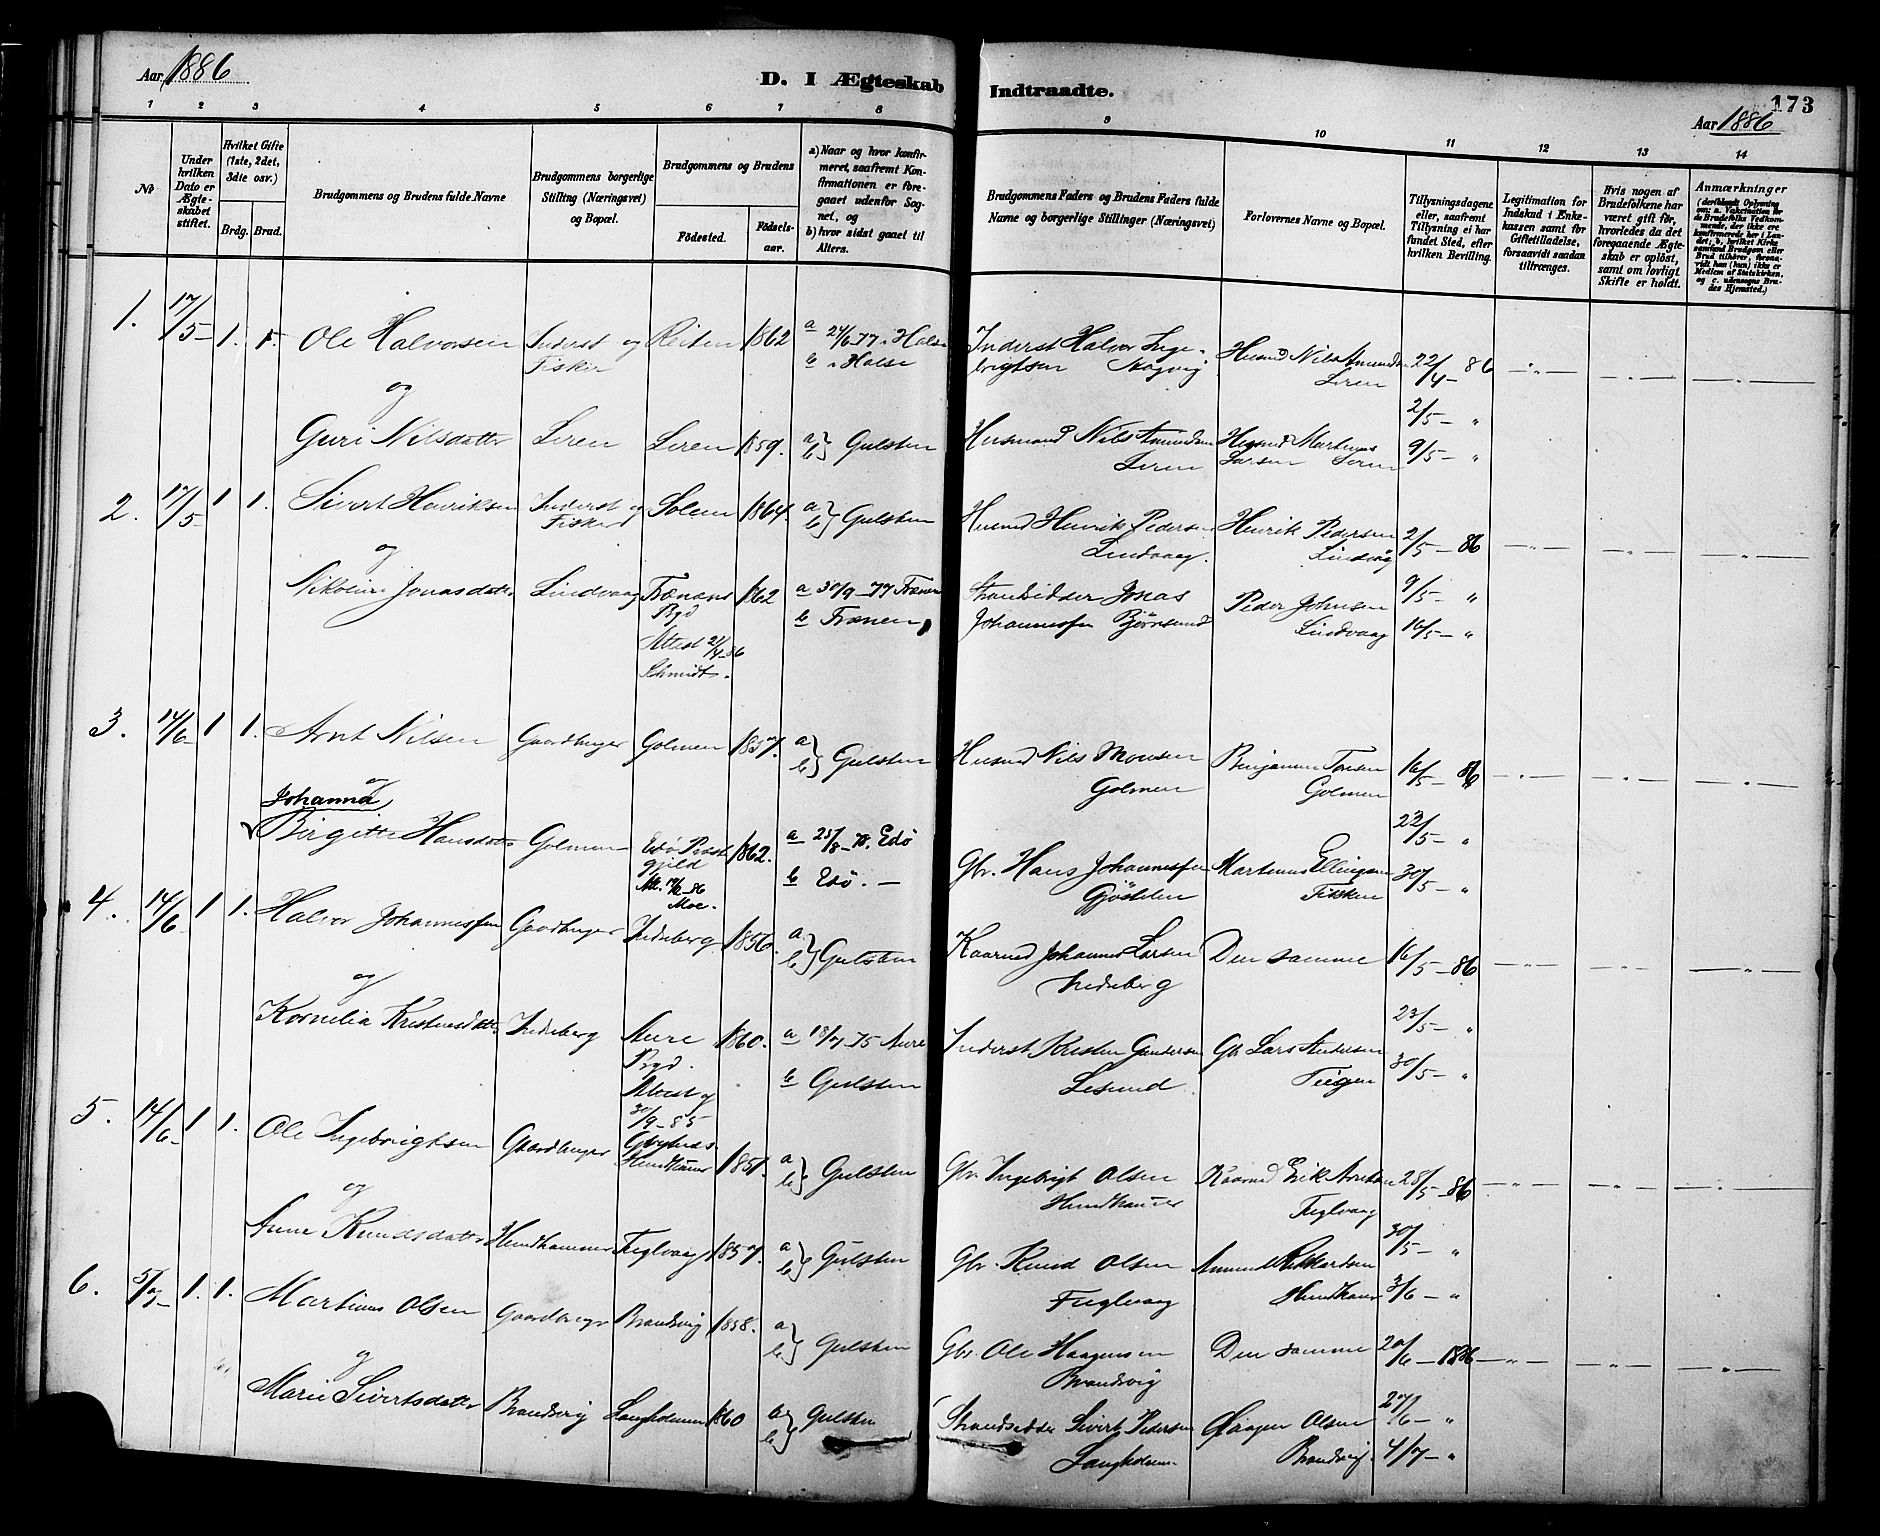 Aar 1886
D. I Ægteskab Indtraadte.
173
Aar 1886
1 2 3 4 5 6 7 8 9 10 11 12 13 14
No
Under hvilken Dato er Ægteskabet stiftet.
Hvilket Gifte (1ste, 2det, 3die osv.)
Brdg. Brud.
Brudgommens og Brudens fulde Navne
Brudgommens borgerlige Stilling (Næringsvei) og Bopæl.
Brudgommens og Brudens
Fødested.
Fødselsaar.
a) Naar og hvor konfirmeret, saafremt Konfirmationen er foregaaet udenfor Sognet, og
b) hvor sidst gaaet til Alters.
Brudgommens Faders og Brudens Faders fulde Navne og borgerlige Stillinger (Næringsvei)
Forlovernes Navne og Bopæl.
Tillysningsdagene eller, saafremt Tillysning ei har fundet Sted, efter hvilken Bevilling.
Legitimation for Indskud i Enkekassen samt for Giftetilladelse, forsaavidt saadan tiltrænges.
Hvis nogen af Brudefolkene har været gift før, hvorledes da det foregaaende Ægteskab er opløst, samt om lovligt Skifte er holdt.
Anmærkninger
1. 17/5 1. 1. Ole Halvorsen Inderst og Fisker Reiten 1862 a 24/6 77 i Halse b i Halse Inderst Halvor Ingebrigtsen Aagvig Husmd Nils Amundsen Leren 22/4 - 86
og
2/5 - "
Guri Nilsdatter Leren Leren 1859. a b} Gulsten Husmand Nils Amundsen Leren Husmd Martinus Larsen Leren 9/5 - "
2. 17/5 1 1. Sivert Henriksen Inderst og Fisker Solem 1864. a b} Gulsten Husmd Henrik Pedersen Lindvaag. Henrik Pedersen Lindvåg 2/5 - 86
og
Nikoline Jonasdatter Lindvaag Frænens Bgd Attest 21/4-86 Schmidt. 1862 a 30/9 - 77 Frænen b Frænen Strandsidder Jonas Johannessen Bjørnsund Peder Johnsen Lindvaag 9/5 - "
16/5 - "
3. 14/6 1 1. Arnt Nilsen Gaardbruger Golmen 1857. a b} Gulsten Husmd Nils Monsen Golmen Benjamin Tøresen Golmen 16/5 - 86
og
23/5 - "
Johanna
Birgitte Hansdatter Golmen Edø Præstegjeld Moe. 1862. a 25/8 - 78. Edø b Edø. - Gbr. Hans Johannessen Gjøstelen Martinus Ellingsen Fisken 30/5 - "
4. 14/6 1 1. Halvor Johannessen Gaardbruger Indreberg 1856. a b} Gulsten Kaarmd Johannes Larsen Indreberg Den samme 16/5 - 86
og
23/5 - "
Kornelia Kristensdatter Indreberg Aure Bgd. Attest af 30/9 - 85 1860. a 18/7 75 Aure b Gulsten Inderst Kristen Gundersen Lesund Gbr Lars Andersen Teigen 30/5 - "
5. 14/6 1 1. Ole Ingebrigtsen Gaardbruger Hundhamer 1851. a b} Gulsten Gbr. Ingebrigt Olsen Hundhamer Kaarmd Erik Arntsen Fuglvaag 25/5 - 86
og
30/5 - "
Anne Knudsdatter Hundhammer Fuglvaag 1857. a b} Gulsten Gbr. Knud Olsen Fuglvaag Amund Rikkardsen Hundhamer 3/6 - "
6. 5/7 1. 1. Martinus Olsen Gaardbruger Brandsvig 1858. a b} Gulsten Gbr. Ole Haagensen Brandsvig Den samme 20/6 - 1886
og
27/6 - "
Marie Sivertsdatter Brandsvig Langholmen 1860 a b} Gulsten Strandsidder Sivert Pedersen Langholmen Haagen Olsen Brandsvig. 4/7 - "